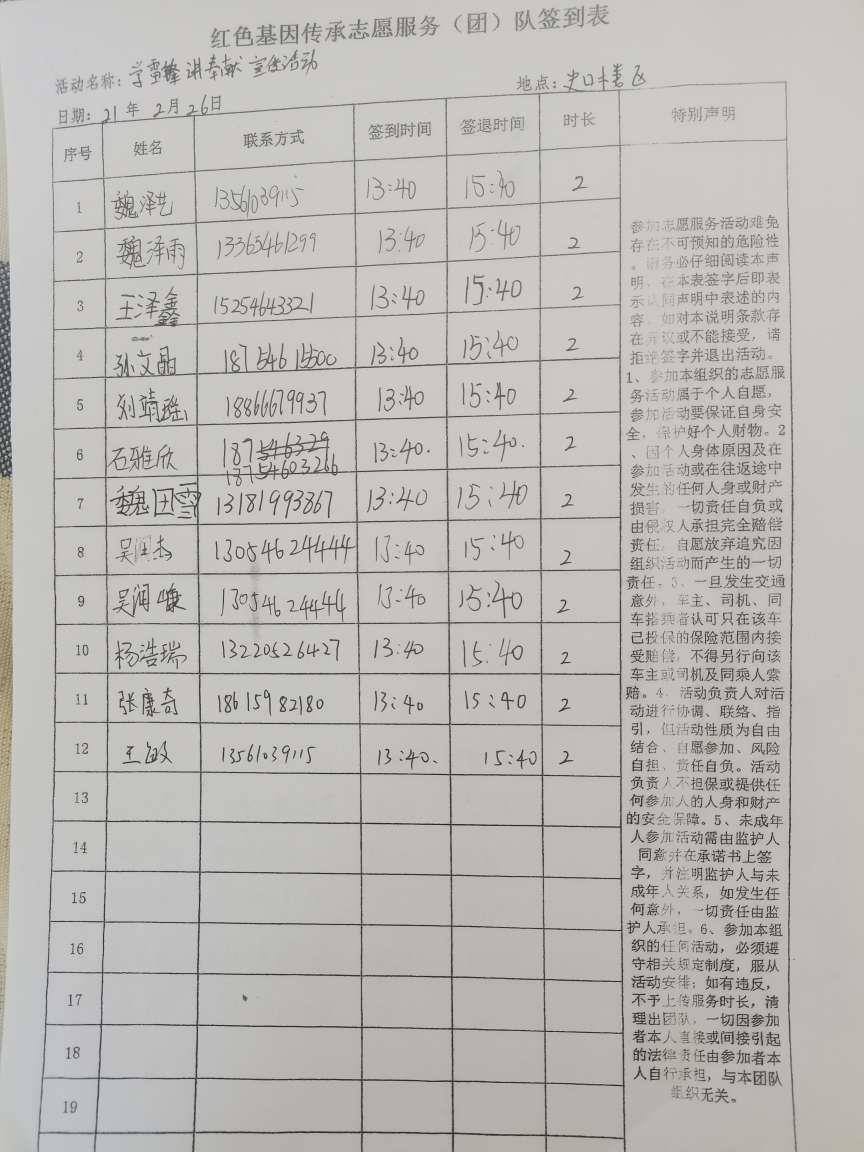 红色基因传承志愿服务（团）队签到表
活动名称：学雷锋讲奉献宣传活动
日期：21年2月26日 地点：史口社区
序号 姓名 联系方式 签到时间 签退时间 时长 特别声明
1 魏泽艺 13561039115 13:40 15:40 2
2 魏泽雨 13365461299 13:40 15:40 2
3 王泽鑫 15254643321 13:40 15:40 2
4 孙文晶 18754615500 13:40 15:40 2
5 刘靖瑶 18866679937 13:40 15:40 2
6 石雅欣 187546329 13:40. 15:40. 2
18754603266
7 魏田雪 13181993867 13:40 15:40 2
8 吴润杰 13054624444 13:40 15:40 2
9 吴润 13054624444 13:40 15:40 2
10 杨浩瑞 13220526427 13:40 15:40 2
11 张康奇 18615982180 13:40 15:40 2
12 王敏 13561039115 13:40. 15:40 2
13
14
15
16
17
18
19
参加志愿服务活动难免
存在不可预知的危险性
。请务必仔细阅读本声
明，在本表签字后即表
示认同声明中表述的内
容。如对本说明条款存
在异议或不能接受，请
拒绝签字并退出活动。
1、参加本组织的志愿服
务活动属于个人自愿，
参加活动要保证自身安
全，保护好个人财物。2
、因个人身体原因及在
参加活动或在往返途中
发生的任何人身或财产
损害，一切责任自负或
由侵权人承担完全赔偿
责任，自愿放弃追究因
组织活动而产生的一切
责任。3、一旦发生交通
意外，车主、司机、同
车搭乘者认可只在该车
己投保的保险范围内接
受赔偿，不得另行向该
车主或司机及同乘人索
赔。4、活动负责人对活
动进行协调、联络、指
引，但活动性质为自由
结合、自愿参加、风险
自担、责任自负。活动
负责人不担保或提供任
何参加人的人身和财产
的安全保障。5、未成年
人参加活动需由监护人
同意并在承诺书上签
字，并注明监护人与未
成年人关系，如发生任
何意外，一切责任由监
护人承担。6、参加本组
织的任何活动，必须遵
守相关规定制度，服从
活动安排；如有违反，
不予上传服务时长，清
理出团队，一切因参加
者本人直接或间接引起
的法律责任由参加者本
人自行承担，与本团队
组织无关。